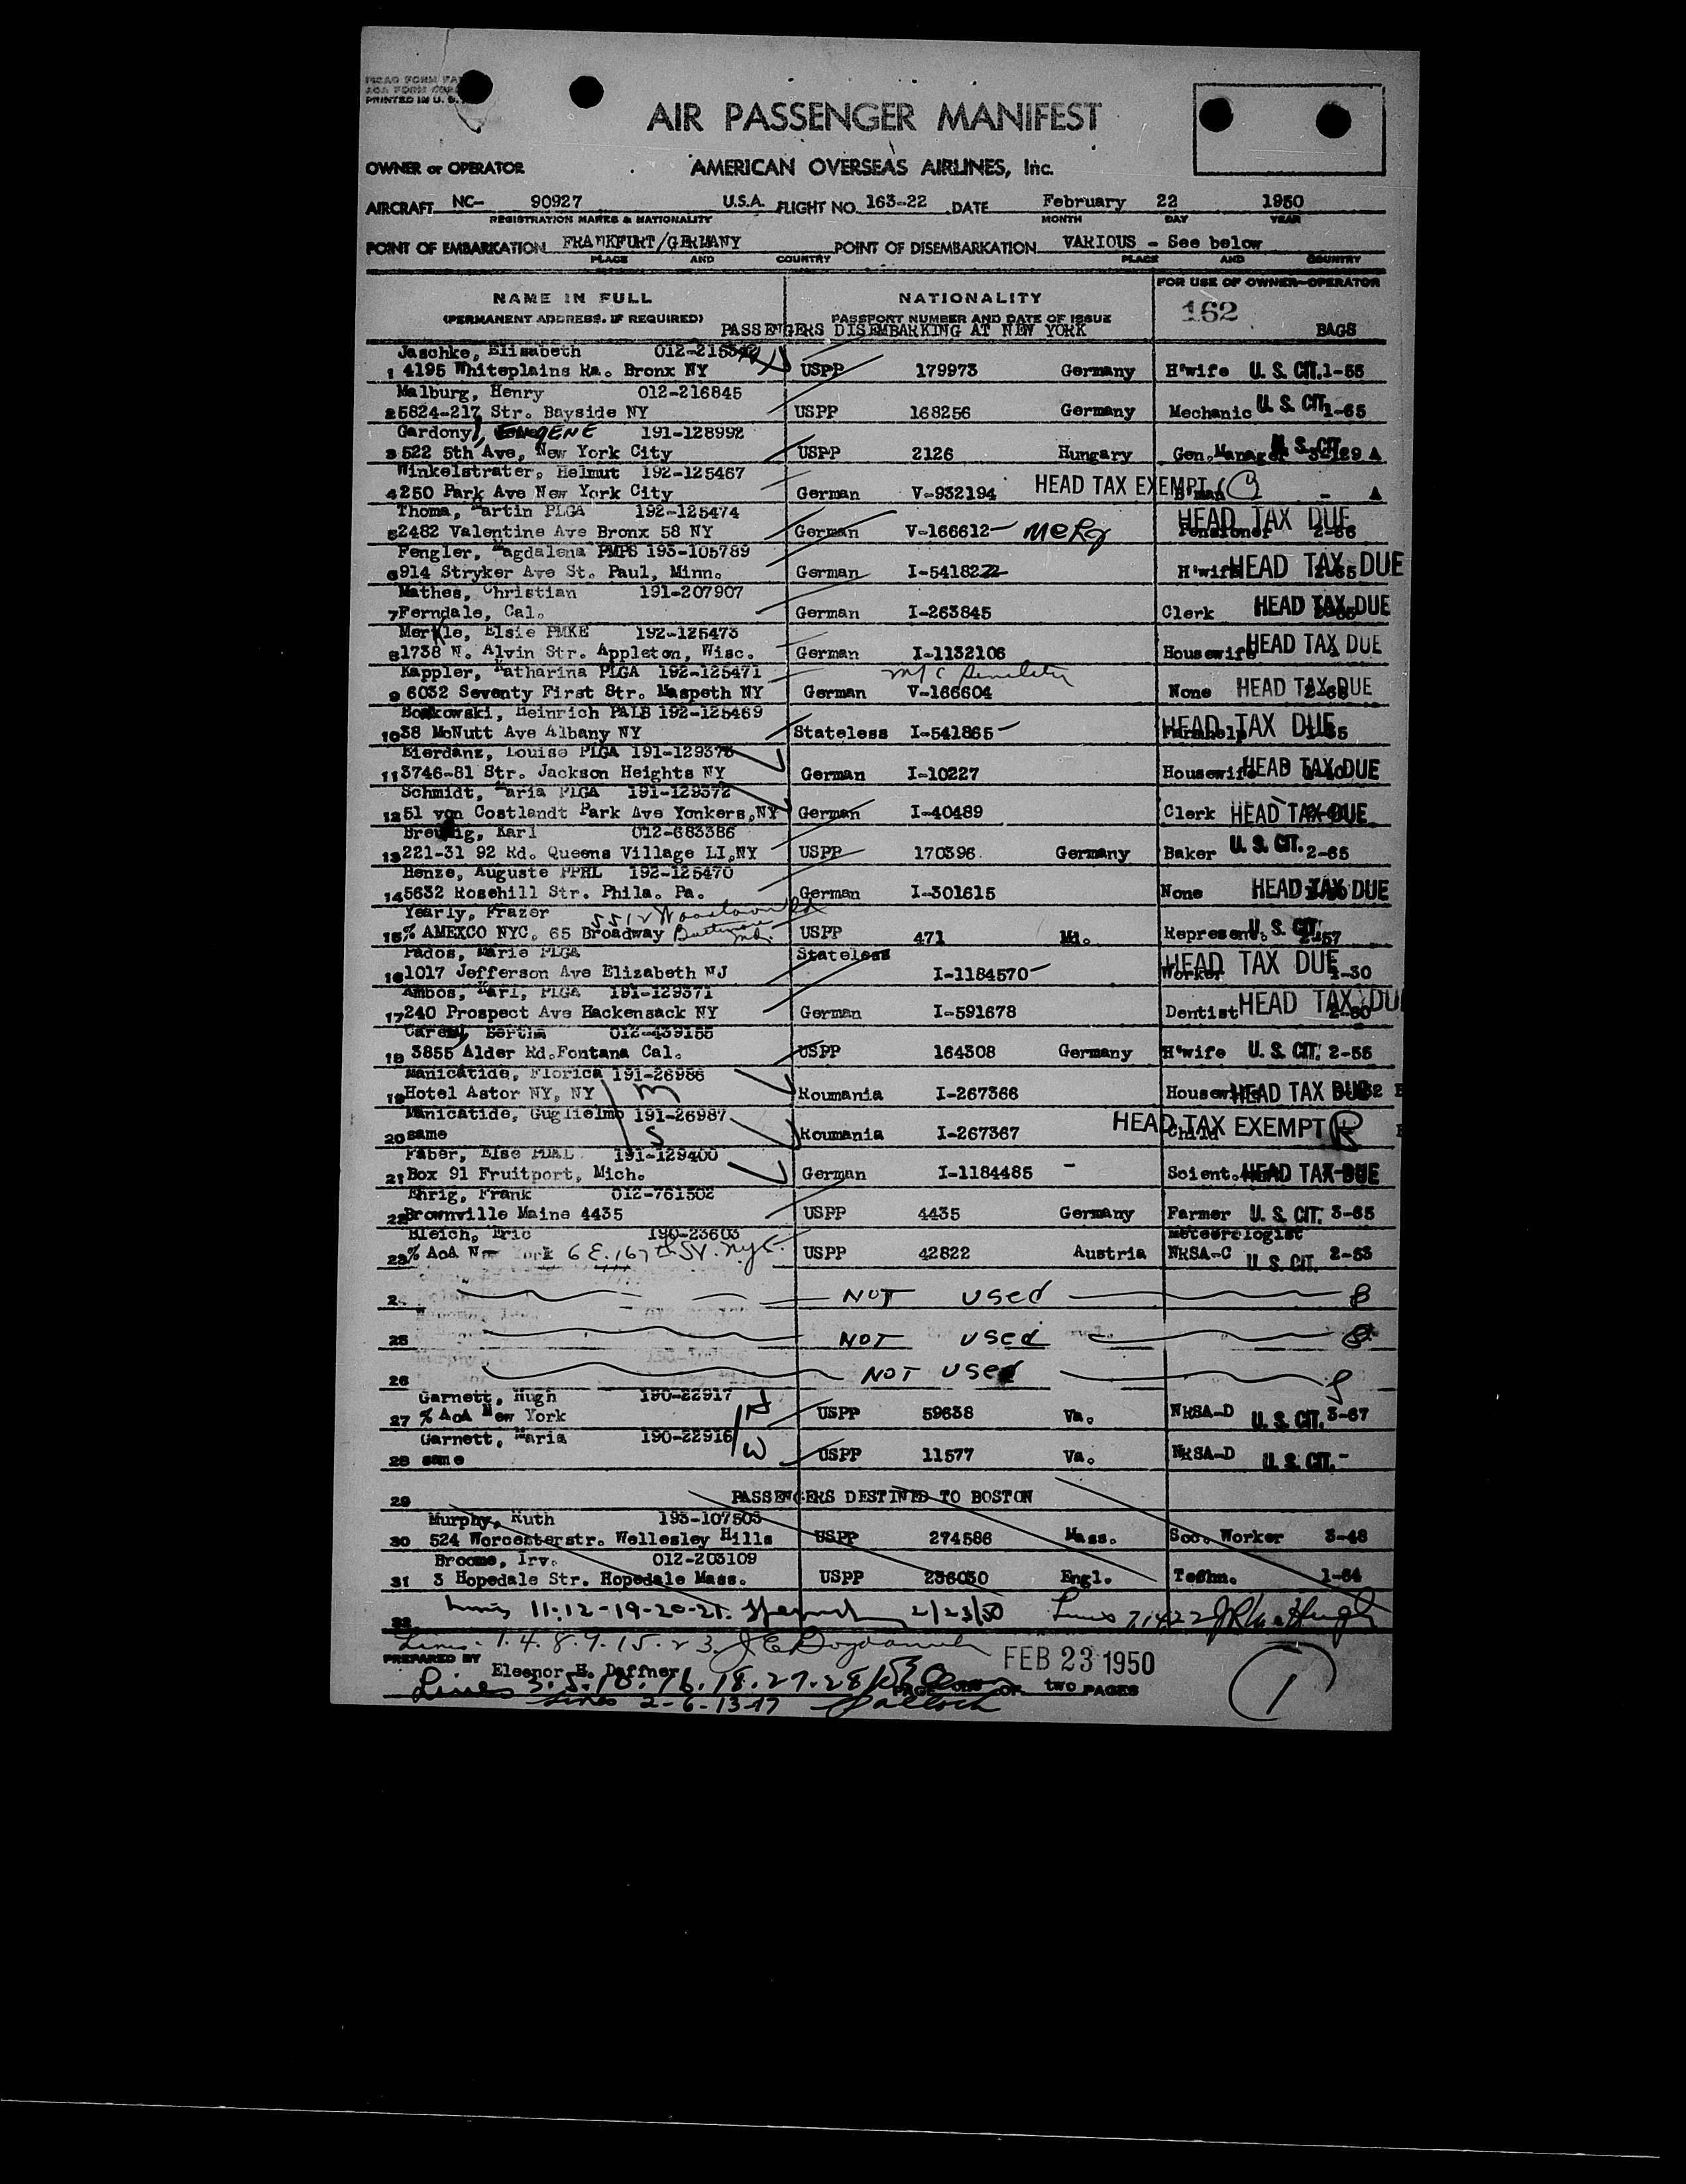 PRINTED IN U. S.
AIR PASSENGER MANIFEST
OWNER or OPERATOR AMERICAN OVERSEAS AIRLINES, Inc.
AIRCRAFT NC- 90927 U.S.A. FLIGHT NO. 163-22 DATE February 22 1950
REGISTRATION MARKS & NATIONALITY MONTH DAY YEAR
POINT OF EMBARKATION FRANKFURT/GERMANY POINT OF DISEMBARKATION VARIOUS - See below
PLACE AND COUNTRY PLACE AND COUNTRY
FOR USE OF OWNER-OPERATOR
NAME IN FULL NATIONALITY 162
(PERMANENT ADDRESS, IF REQUIRED) PASSPORT NUMBER AND DATE OF ISSUE
PASSENGERS DISEMBARKING AT NEW YORK BAGS
Jaschke, Elisabeth
1 4195 Whiteplains Ra. Bronx NY USPP 179973 Germany H'wife U. S. CIT. 1-55
Malburg, Henry 012-216845
2 5824-217 Str. Bayside NY USPP 168256 Germany Mechanic U. S. CIT. 1-65
Gardony, EUGENE 191-128992
3 522 5th Ave, New York City USPP 2126 Hungary Gen.Manager U. S. CIT. A
Winkelstrater, Helmut 192-125467
4 250 Park Ave New York City German V-932194 HEAD TAX EXEMPT - A
Thoma, Martin PLGA 192-125474
5 2482 Valentine Ave Bronx 58 NY German V-166612 HEAD TAX DUE Pensioner 2-66
Fengler, Magdalena PMPS 193-105789
6 914 Stryker Ave St. Paul, Minn. German I-541822 H'wife HEAD TAX DUE
Mathes, Christian 191-207907
7 Ferndale, Cal. German I-263845 Clerk HEAD TAX DUE
Merkle, Elsie PMKE 192-125473
8 1738 N. Alvin Str. Appleton, Wisc. German I-1132106 Housewife HEAD TAX DUE
Kappler, Katharina PLGA 192-125471
9 6032 Seventy First Str. Maspeth NY German V-166604 None HEAD TAX DUE
Boskowski, Heinrich PALB 192-125469
10 38 McNutt Ave Albany NY Stateless I-541865 Farmhelp HEAD TAX DUE
Eierdanz, Louise PLGA 191-129373
11 3746-81 Str. Jackson Heights NY German I-10227 Housewife HEAD TAX DUE
Schmidt, Maria PLGA 191-129372
12 51 von Costlandt Park Ave Yonkers,NY German I-40489 Clerk HEAD TAX DUE
Breunig, Karl 012-683386
13 221-31 92 Rd. Queens Village LI,NY USPP 170396 Germany Baker U. S. CIT. 2-65
Henze, Auguste PPHL 192-125470
14 5632 Rosehill Str. Phila. Pa. German I-301615 None HEAD TAX DUE
Yearly, Frazer 5512 Woodlawn Rd
15 % AMEXCO NYC, 65 Broadway Baltimore Md. USPP 471 Md. Represent. U. S. CIT. 2-57
Pados, Marie PLGA Stateless
16 1017 Jefferson Ave Elizabeth NJ I-1184570 Worker HEAD TAX DUE 1-30
Ambos, Karl, PLGA 191-129371
17 240 Prospect Ave Hackensack NY German I-591678 Dentist HEAD TAX DUE
Bertha 012-439155
18 3855 Alder Rd.Fontana Cal. USPP 164308 Germany H'wife U. S. CIT. 2-55
Manicatide, Florica 191-26986 m
19 Hotel Astor NY, NY Roumania I-267366 Housewife HEAD TAX DUE
Manicatide, Guglielmo 191-26987 S
20 same Roumania I-267367 Child HEAD TAX EXEMPT R
Faber, Else PDAL 191-129400
21 Box 91 Fruitport, Mich. German I-1184485 - Scient. HEAD TAX DUE
Ehrig, Frank 012-761502
22 Brownville Maine 4435 USPP 4435 Germany Farmer U. S. CIT. 3-65
Bleich, Eric 190-23603 Meteorologist
23 % AoA New York 6 E. 167th St. NYC. USPP 42822 Austria NRSA-C U. S. CIT. 2-53
2 NOT used
25 NOT used
26 NOT used
Garnett, Hugh 190-22917 H
27 % AoA New York USPP 59638 Va. NRSA-D U. S. CIT. 3-67
Garnett, Maria 190-22916 W
28 same USPP 11577 Va. NRSA-D U. S. CIT. -
29 PASSENGERS DESTINED TO BOSTON
Murphy, Ruth 193-107503
30 524 Worcesterstr. Wellesley Hills USPP 274586 Mass. Soc. Worker 3-48
Broome, Irv. 012-203109
31 3 Hopedale Str. Hopedale Mass. USPP 236030 Engl. Techn. 1-64
32 Lines 11-12-19-20-21. 2/23/50 Lines 7,14,22
Lines. 1.4.8.9.15.23.
PREPARED BY Eleonor H. Daffner FEB 23 1950
Lines 3.5.10.16.18.27.28 PAGE ONE OF two PAGES 1
Lines 2-6-13-17